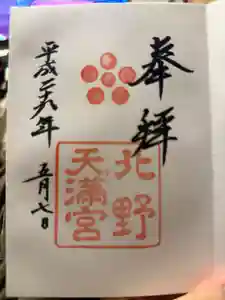 奉拝
北野
天満宮
平成二十九年
五月七日